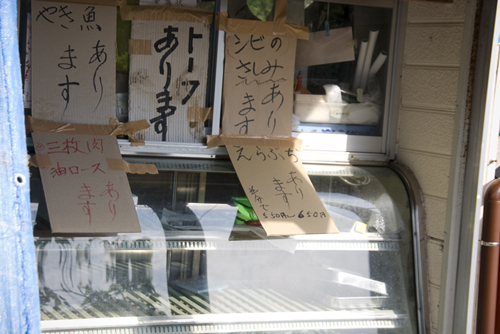 やき魚
あり
ます
トーフ
あります
シビの
さしみ
あり
ます
三枚肉
油ロース
あり
ます
えらぶち
あり
ます
550円〜650円